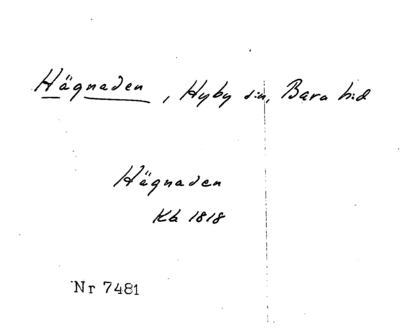 Hägnaden, Hyby sn, Bara hd
Hägnaden
Kb 1818
Nr 7481